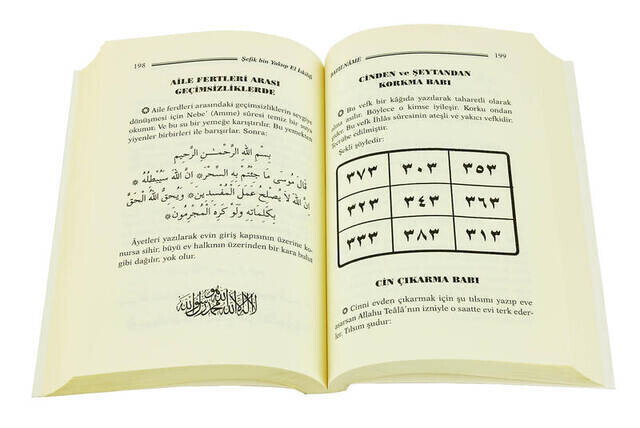 198 Şefik bin Yakup El İskilibî
AİLE FERTLERİ ARASI
GEÇİMSİZLİKLERDE
Aile ferdleri arasındaki geçimsizliklerin sevgiye
dönüşmesi için Nebe' (Amme) sûresi temiz bir suya
okunur. Ve bu su bir yemeğe karıştırılır. Bu yemekten
yiyenler birbirleri ile barışırlar. Sonra:
بِسْمِ اللهِ الرَّحْمٰنِ الرَّحِيمِ
قَالَ مُوسٰى مَا جِئْتُمْ بِهِ السِّحْرُ اِنَّ اللهَ سَيُبْطِلُهُ
اِنَّ اللهَ لَا يُصْلِحُ عَمَلَ الْمُفْسِدِينَ وَيُحِقُّ اللهُ الْحَقَّ
بِكَلِمَاتِهِ وَلَوْ كَرِهَ الْمُجْرِمُونَ
Âyetleri yazılarak evin giriş kapısının üzerine ko-
nursa sihir, büyü ev halkının üzerinden bir kara bulut
gibi dağılır, yok olur.
لا اله الا الله محمد رسول الله
199
CİNDEN ve ŞEYTANDAN
KORKMA BABI
Bu vefk bir kâğıda yazılarak taharetli olarak
asılır. Böylece o kimse iyileşir. Korku ondan
olur. Bu vefk İhlâs sûresinin ateşli ve yakıcı vefkidir.
Tecrübe edilmiştir.
Şekli şöyledir:
٣٧٣ ٣٠٣ ٣٥٣
٣٢٣ ٣٤٣ ٣٦٣
٣٣٣ ٣٨٣ ٣١٣
CİN ÇIKARMA BABI
Cinni evden çıkarmak için şu tılsım yazıp eve
asarsan Allahu Teâlâ'nın izniyle o saatte evi terk eder-
ler. Tılsım şudur: